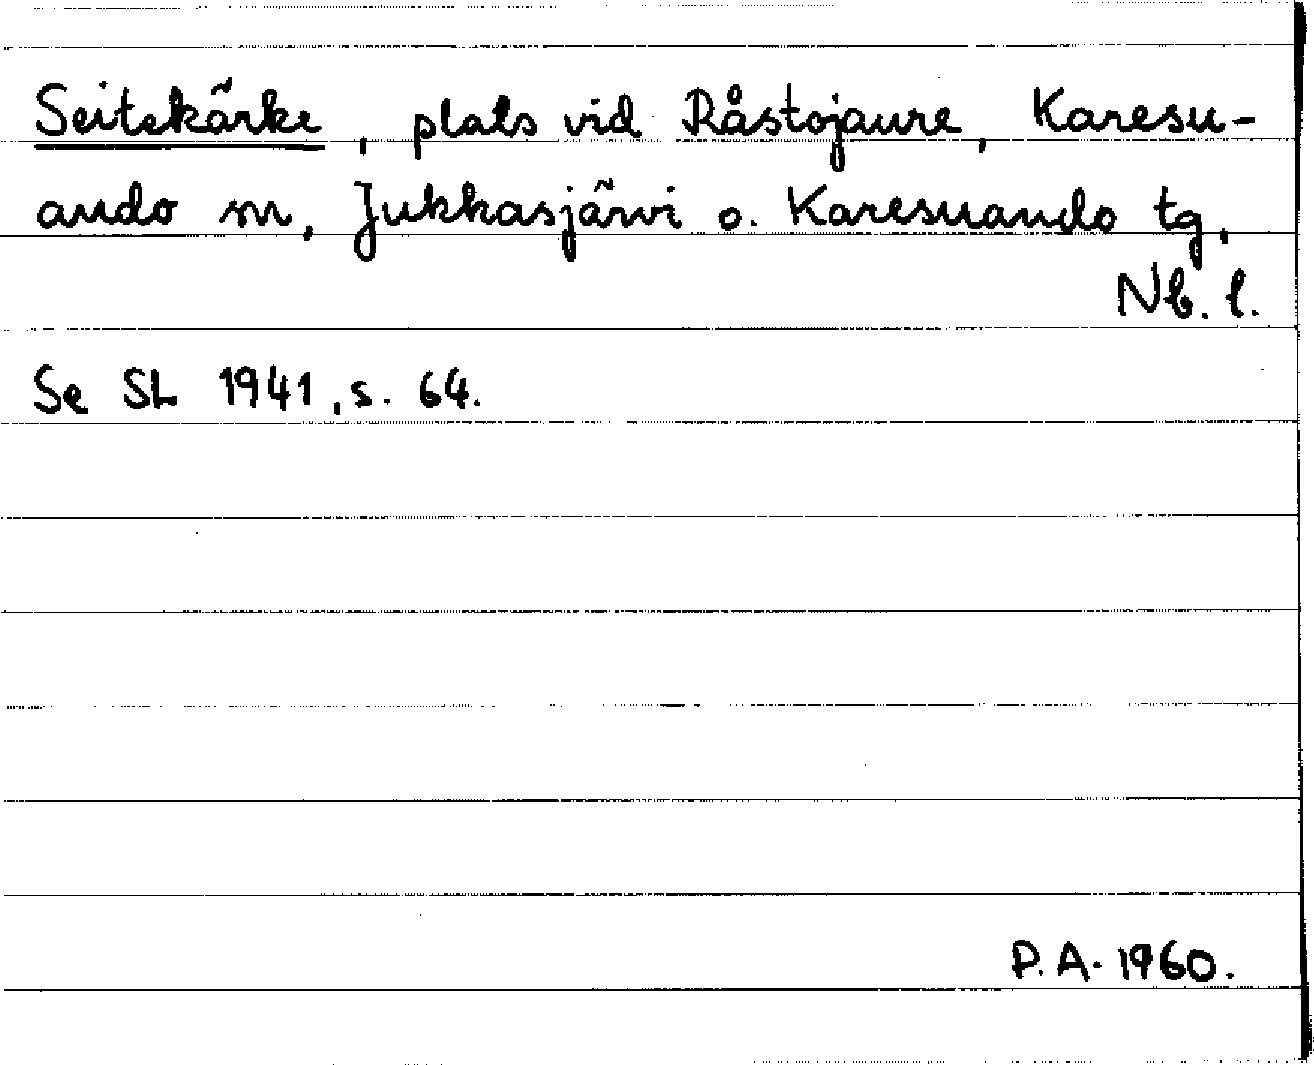 Seitekärke, plats vid Råstojaure, Karesu-
ando m, Jukkasjärvi o. Karesuando tg,
Nb. l.
Se SL 1941, s. 64.
P.A. 1960.